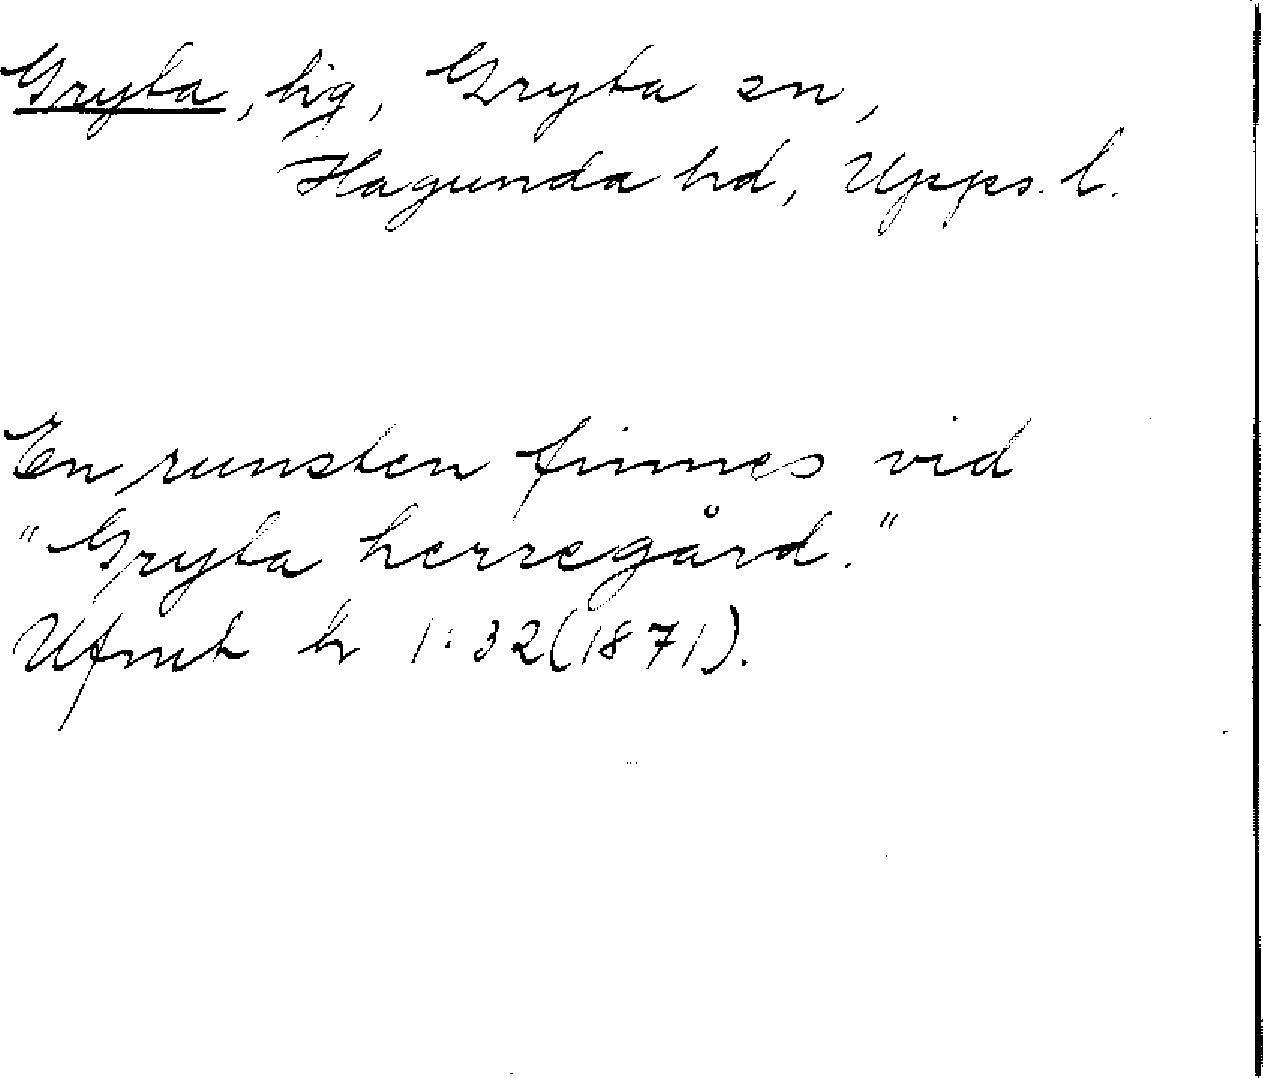 Gryta, hg, Gryta sn,
Hagunda hd, Upps. l.
En runsten finnes vid
"Gryta herregård."
Ufmt h 1:32(1871).